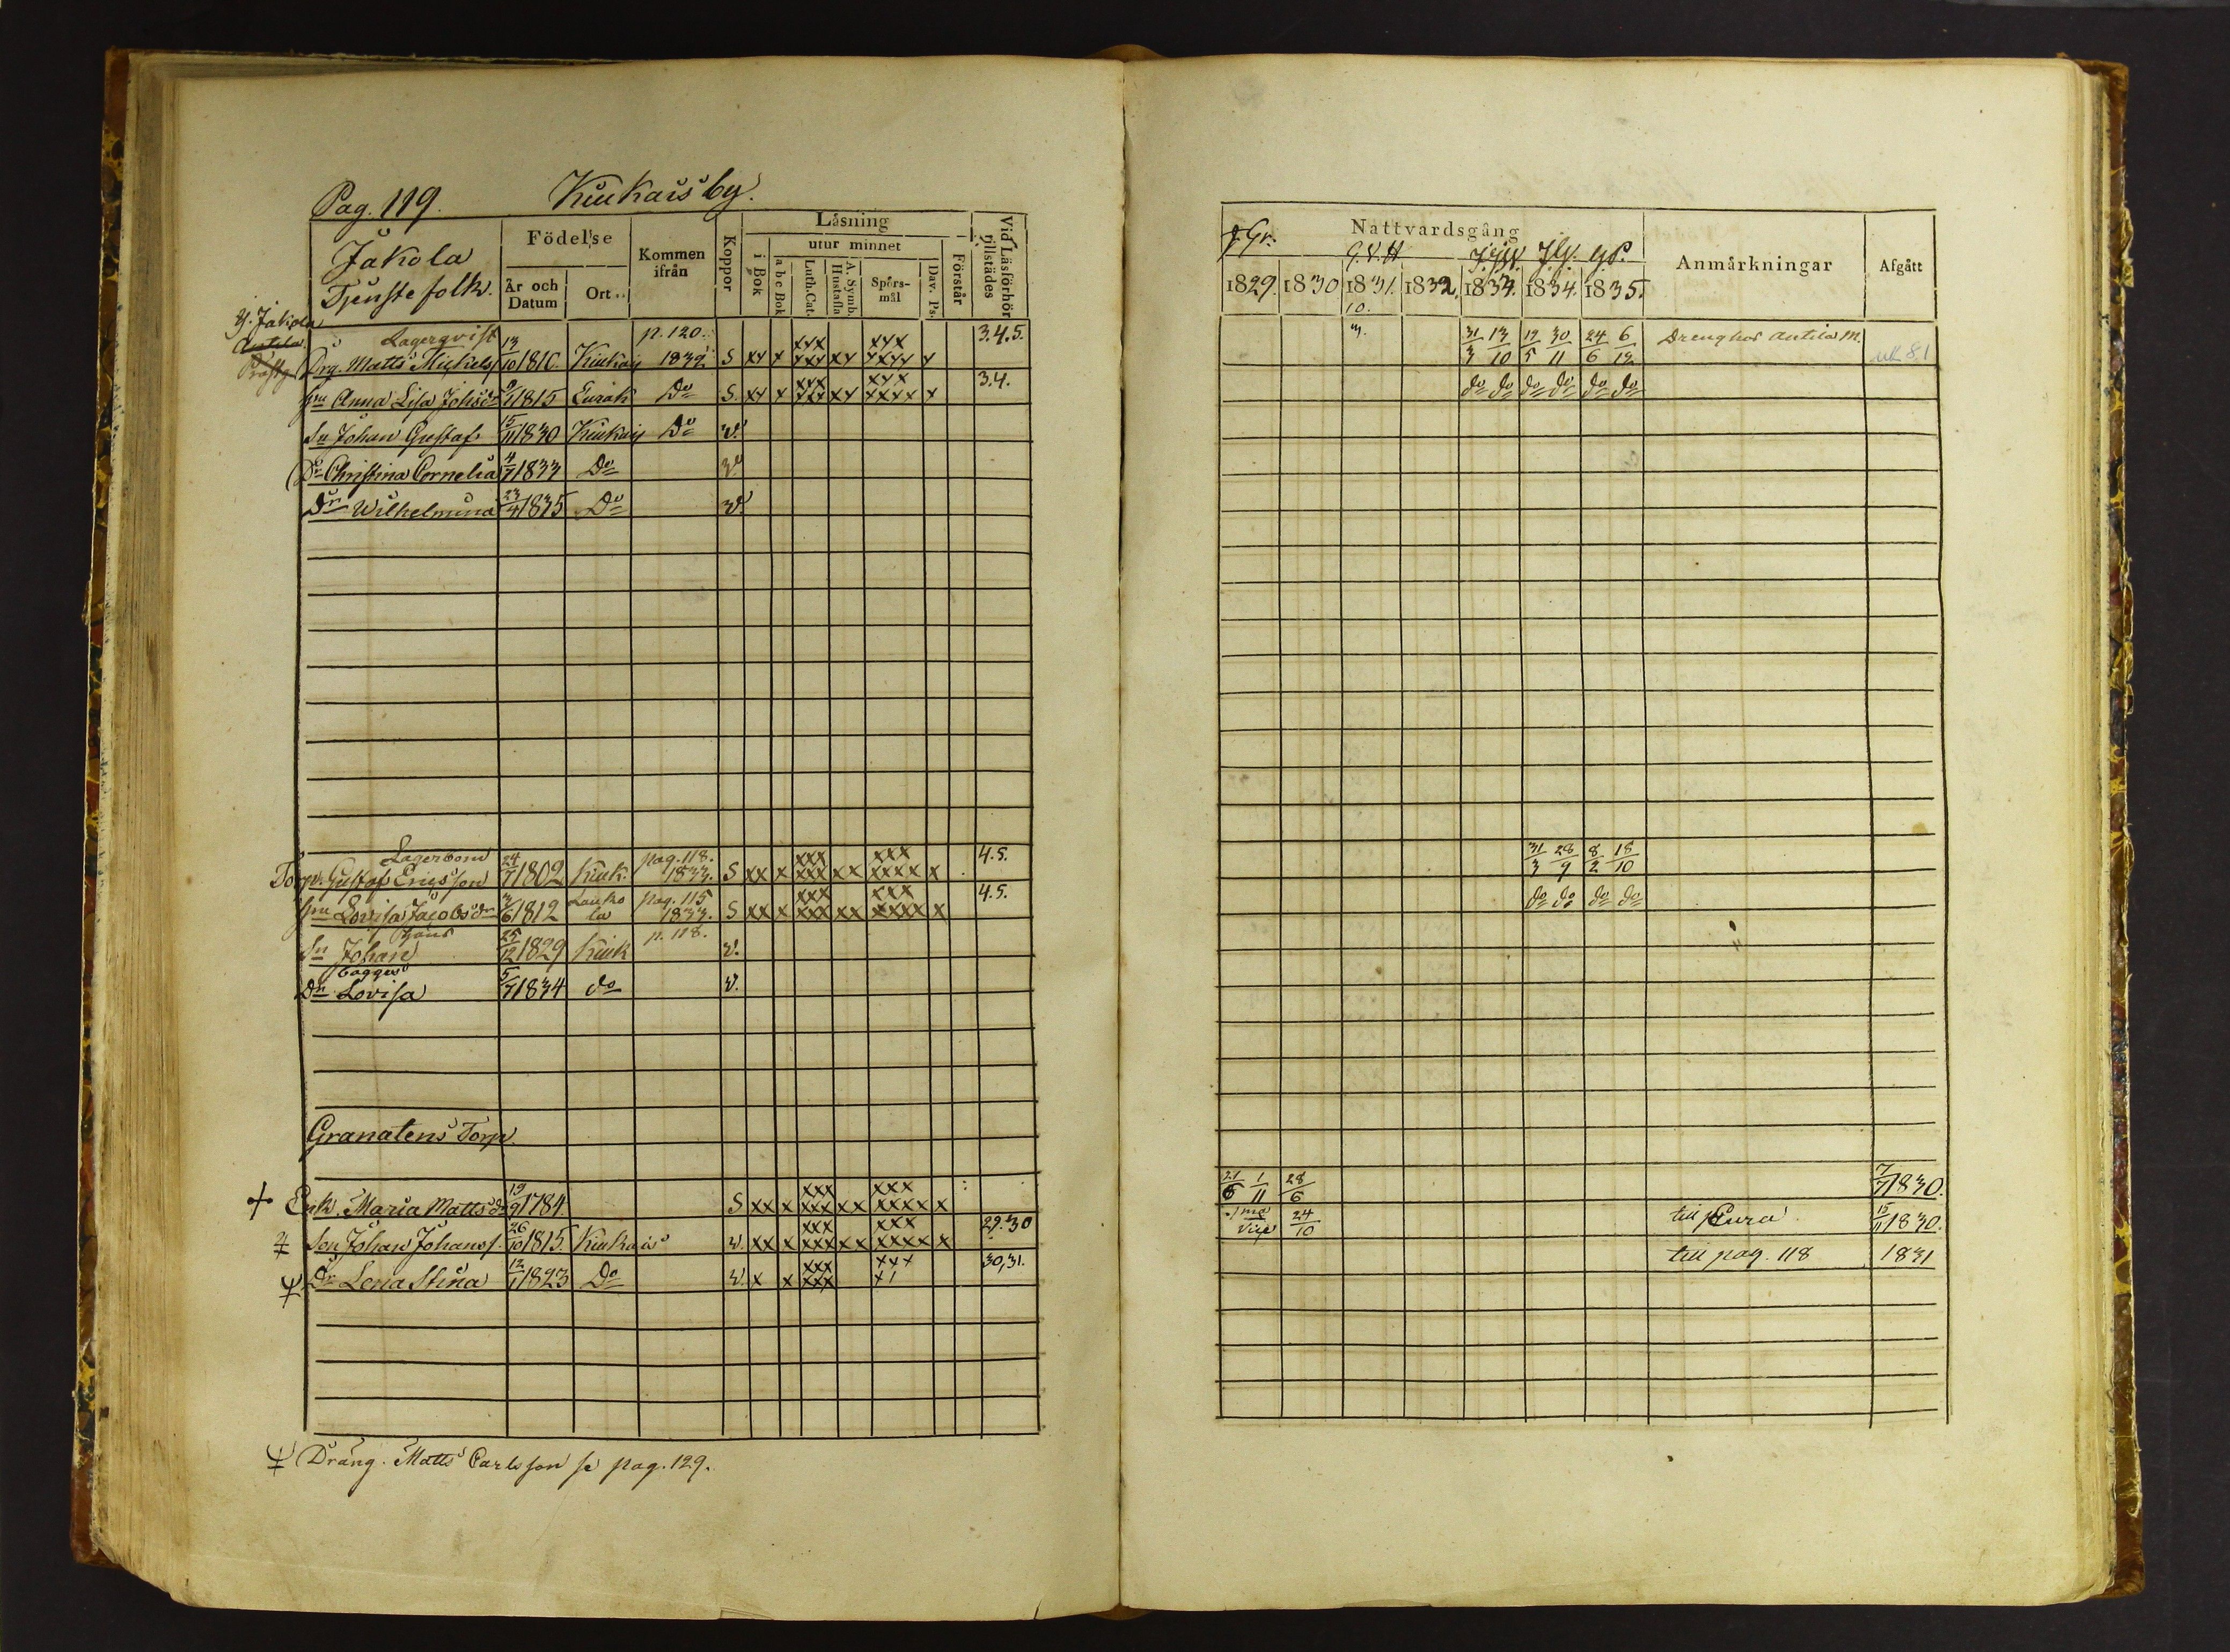 Pag. 119. Kiukais by.
Jakola
Tjenstefolk.
Födelse
År och Datum
Ort
Kommen ifrån
Koppor
Läsning
i Bok
utur minnet
a b c Bok
Luth. Cat.
A. Symb. Hustafla
Spörsmål
Dav. Ps.
Förstår
Vid Läsförhör tillstädes
Jakola
Lagerqvist p. 120. xxx xxx 3.4.5.
Drg. Matts Mickels 13/10 1810. Kiukais 1832 S xx x xxx xx xxxx x
xxx xxx 3.4.
Hu Anna Lisa Johsdr 1815 Eurak Do S. xx x xxx xx xxxx x
Sn Johan Gustaf 15/11 1830 Kiukais Do v.
Dr Christina Cornelia 4/7 1833 Do v.
Dr Wilhelmina 23/4 1835 Do v.
Lagerbom pag. 118. xxx xxx 4.5.
Torp. Gustaf Ericsson 24/7 1802 Kiuk. 1833. S xx x xxx xx xxxx x
Lauko pag. 115 xxx xxx 4.5.
Hu Lovisa Jacobsdr 3/6 1812 la 1833. S xx x xxx xx xxxx x
p. 118.
Sn Johan 25/12 1829 Kiuk v.
Dr Lovisa 5/7 1834 do v.
Granatens Torp.
xxx xxx
Enk. Maria Mattsdr 19/9 1784. S xx x xxx xx xxxxx x
xxx xxx 29.30
Son Johan Johans. 26/10 1815. Kiukais v. xx x xxx xx xxxxx x
xxx xxx 30,31.
Dr Lena Stina 12/1 1823 Do v. x x xxx x/
Dräng. Matts Carlsson se pag. 129.
Nattvardsgång
Anmärkningar
Afgått
1829. 1830 1831. 1832. 1833. 1834. 1835.
10.
31/3 13/10 19/5 30/11 24/6 6/12 Dreng hos Antila M.
do do do do do do
31/3 28/9 8/2 18/10
do do do do
21/6 1/11 28/6 7/7 1830.
24/10 till Eura 15/11 1830.
till pag. 118 1831